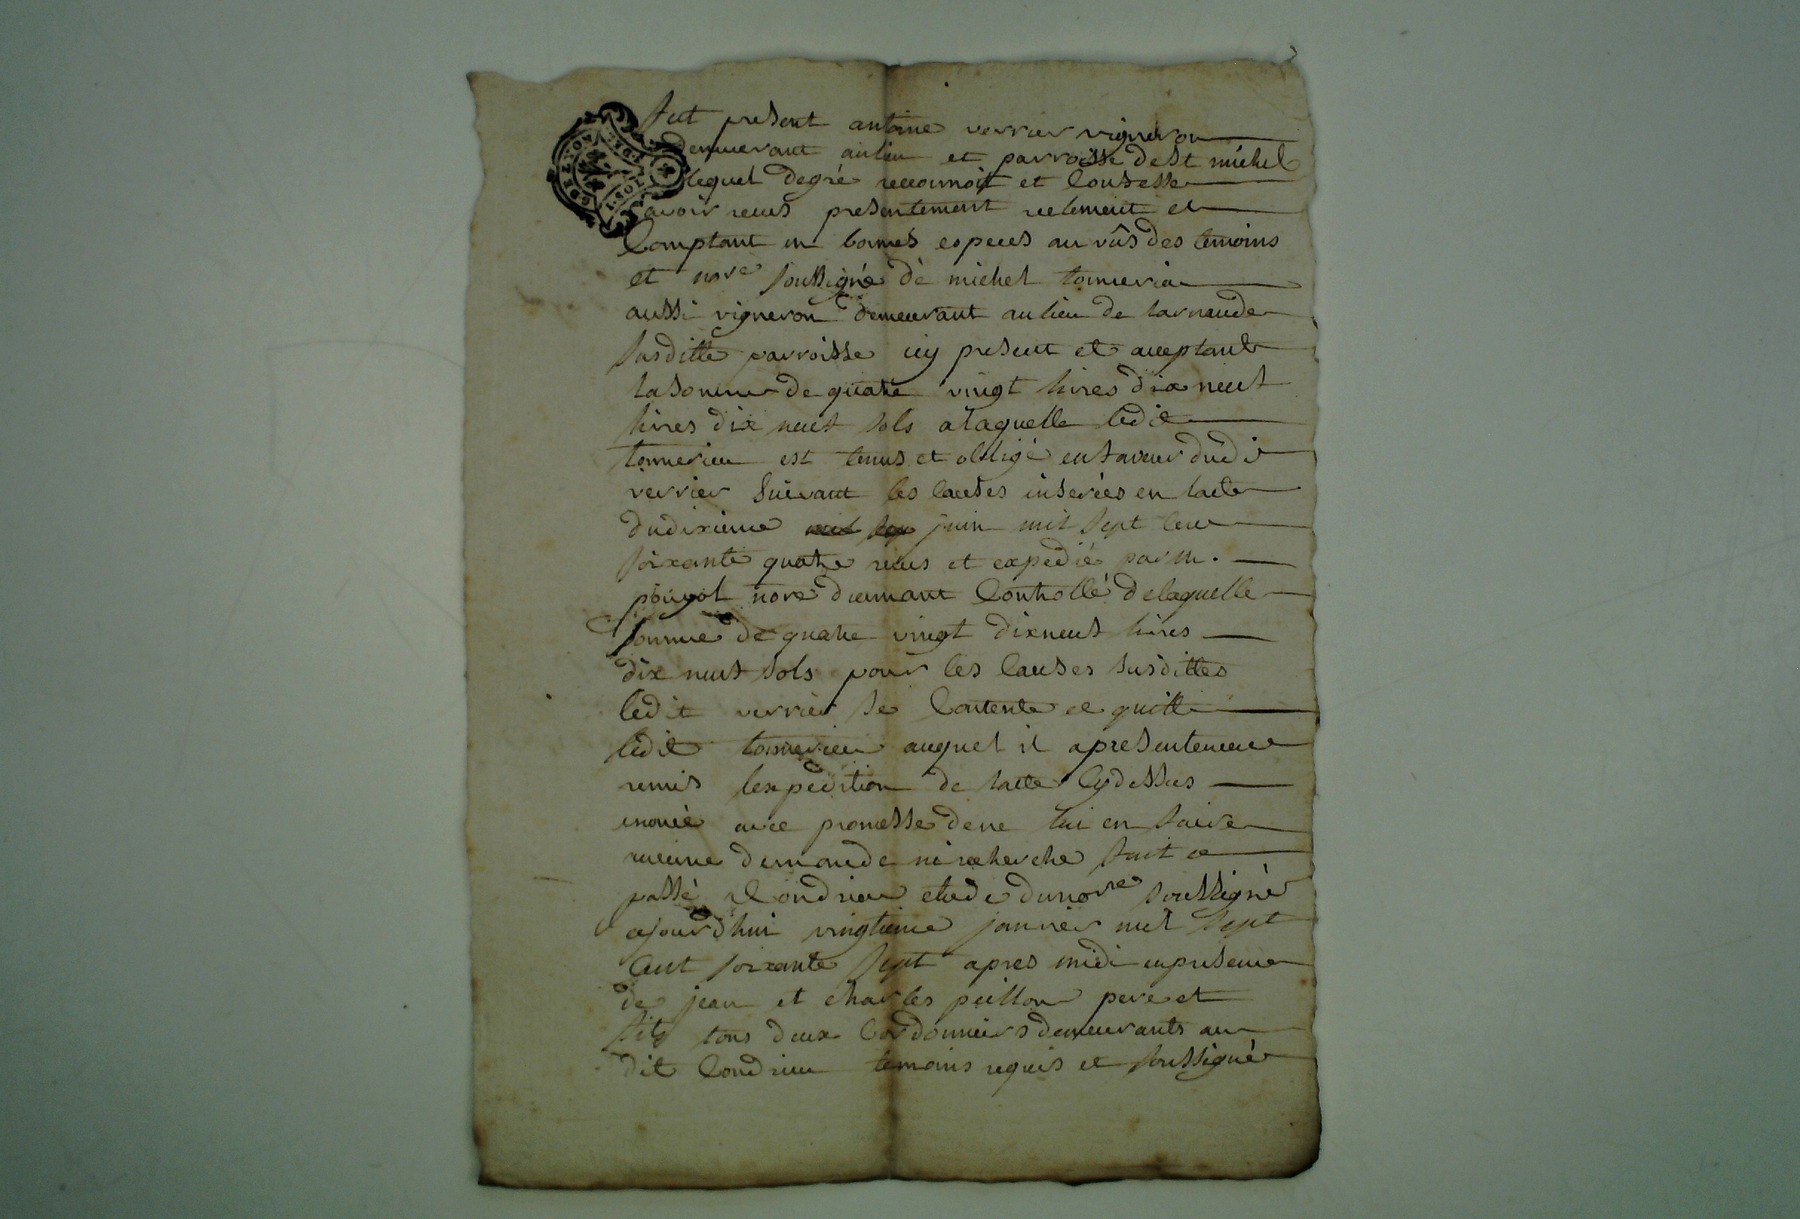 fut present antoine verrier vigneron
demeurant au lieu et parroisse de st michel
lequel de gré reconnoit et confesse
avoir reçus presentement reelement et
Comptant en bonnes especes au vûs des temoins
et nore soussigné de michel tonnerieu
aussi vigneron demeurant au lieu de larnaude
susditte parroisse icy present et acceptant
la somme de quatre vingt livres dix neuf
livres dix neuf sols a laquelle ledit
tonnerieu est tenus et obligé en faveur dudit
verrier suivant les causes inserées en lacte
du dixieme juin mil sept cent
soixante quatre reçus et expedié par m.
nore duement Controllé de laquelle
somme de quatre vingt dix neuf livres
dix neuf sols pour les causes susdittes
ledit verrier se Contente et quitte
ledit tonnerieu auquel il a presentement
remis lexpedition de lacte Cy dessus
enoncé avec promesse de ne lui en faire
aucune demande ni recherche fait et
passé a Condrieu etude du nore soussigné
cejourdhui vingtieme janvier mil sept
Cent soixante sept apres midi en presence
de jean et charles peillon pere et
fils tous deux Cordonniers demeurants au
dit Condrieu temoins requis et soussigné
DE LYON